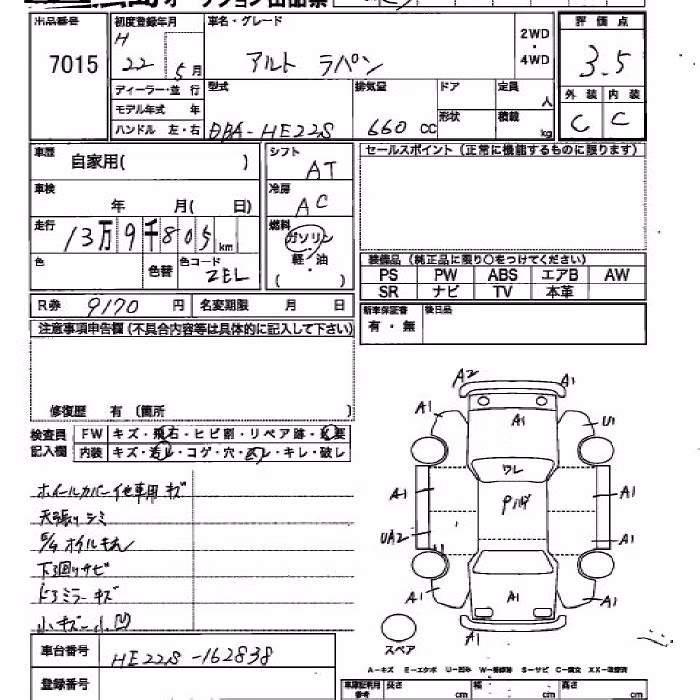 出品番号 7015
初度登録年月 H 22 5月
車名・グレード アルト ラパン
2WD・4WD
評価点 3.5
外装 C 内装 C
ディーラー・並行
モデル年式 年
ハンドル 左・右
型式 DBA-HE22S
排気量 660 CC
ドア
形状
定員 人
積載 kg
車歴 自家用( )
シフト AT
セールスポイント (正常に機能するものに限ります)
車検 年 月( 日)
冷房 AC
走行 13万9千805km
燃料 ガソリン 軽・油 ( )
色 色替 色コード ZEL
装備品 (純正品に限り〇をつけてください)
PS PW ABS エアB AW
SR ナビ TV 本革
R券 9170円 名変期限 月 日
新車保証書 有・無
後日品
注意事項申告欄 (不具合内容等は具体的に記入して下さい)
修復歴 有 (箇所 )
検査員 FW キズ・飛石・ヒビ割・リペア跡・要
記入欄 内装 キズ・汚レ・コゲ・穴・・キレ・破レ
ホイールカバー他車用 キズ
天張りシミ
下廻りサビ
ドアミラーキズ
小キズ小凹
A2 A1
A1 A1 U1
ワレ
A1 A1
UA2 A1
A1 A1 A1
A1
スペア
A-キズ E-エクボ U-凹み W-補修跡 S-サビ C-腐食 XX-交換済
車台番号 HE22S-162838
登録番号
車庫証明用参考 長さ cm 幅 cm cm